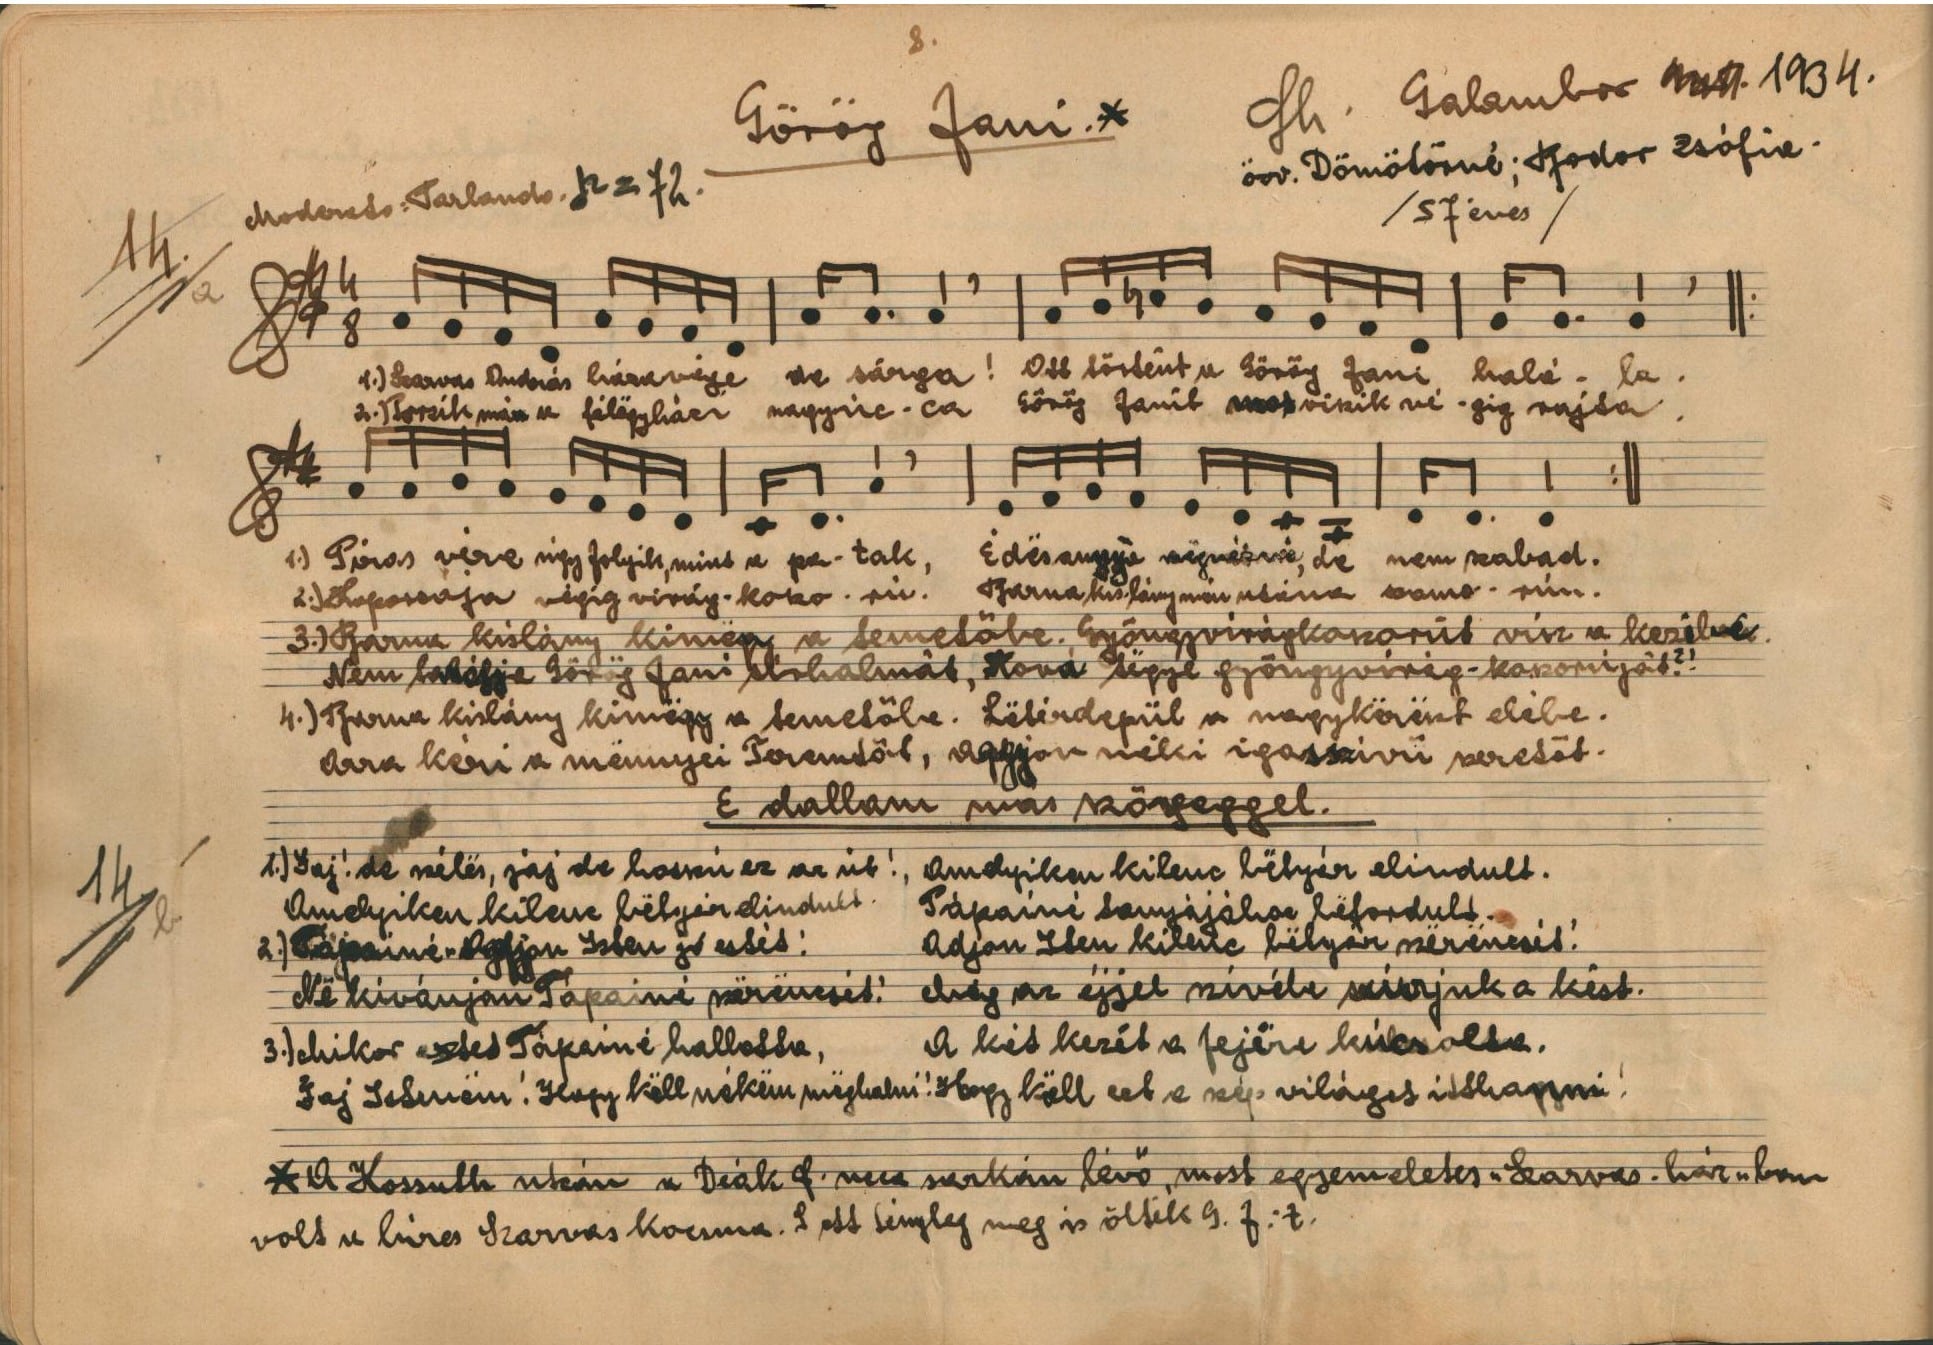 8.
Görög Jani.*
Galambos 1934.
özv. Dömötörné; Bodor Zsófia.
/57 éves/
Moderato: Parlando. = 72.
14.
a
4
8
1.) Szarvas András háza vége de sárga! Ott történt a Görög Jani halá - la.
2.) már a félëgyházi nagyuc - ca Görög Janit most viszik vé - gig rajta.
1.) Piros vére úgy folyik, mint a pa - tak, Édësanyja végnézné, de nem szabad.
2.) Koporsója végig virág - koszo - rú. Barna kislány mén utána szomo - rún.
3.) Barna kislány kimëgy a temetőbe. Gyöngyvirágkoszorút visz a kezibe.
Nem találja Görög Jani sírhalmát, Hová tëgye gyöngyvirág-koszorúját?!
4.) Barna kislány kimëgy a temetőbe. Letérdepül a nagykërëszt elébe.
Arra kéri a mënnyei Teremtőt, Aggyon néki igazszívű szeretőt.
E dallam más szöveggel.
14.
b
1.) Jaj! de szélës, jaj de hosszú ez az út!, Amelyiken kilenc bëtyár elindult.
Amelyiken kilenc bëtyár elindult. Pápainé tanyájához béfordult.
2.) Pápainé Adjon Isten jó estét! Adjon Isten kilenc bëtyár szërëncsét!
Në kívánjon Pápainé szërëncsét! Még az éjjel szívébe szúrjuk a kést.
3.) Mikor eztet Pápainé hallotta, A két kezét a fejére kúcsolta.
Jaj Istenëm! Hogy këll nékëm mëghalni! Hogy këll ezt a szép világot itthagyni!
* A Kossuth utcán a Deák F. ucca sarkán lévő, most egyemeletes „Szarvas-ház"-ban
volt a híres Szarvas kocsma. S ott tényleg meg is ölték G. J.-t.